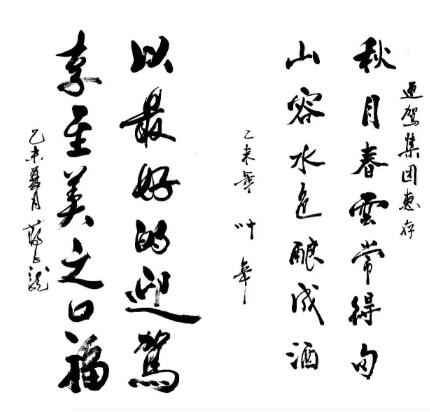 迎駕集团惠存
秋月春雲常得句
山容水色酿成酒
乙未春 叶辛
以最好的迎駕
享至美之口福
乙未夏月 蒋子龙